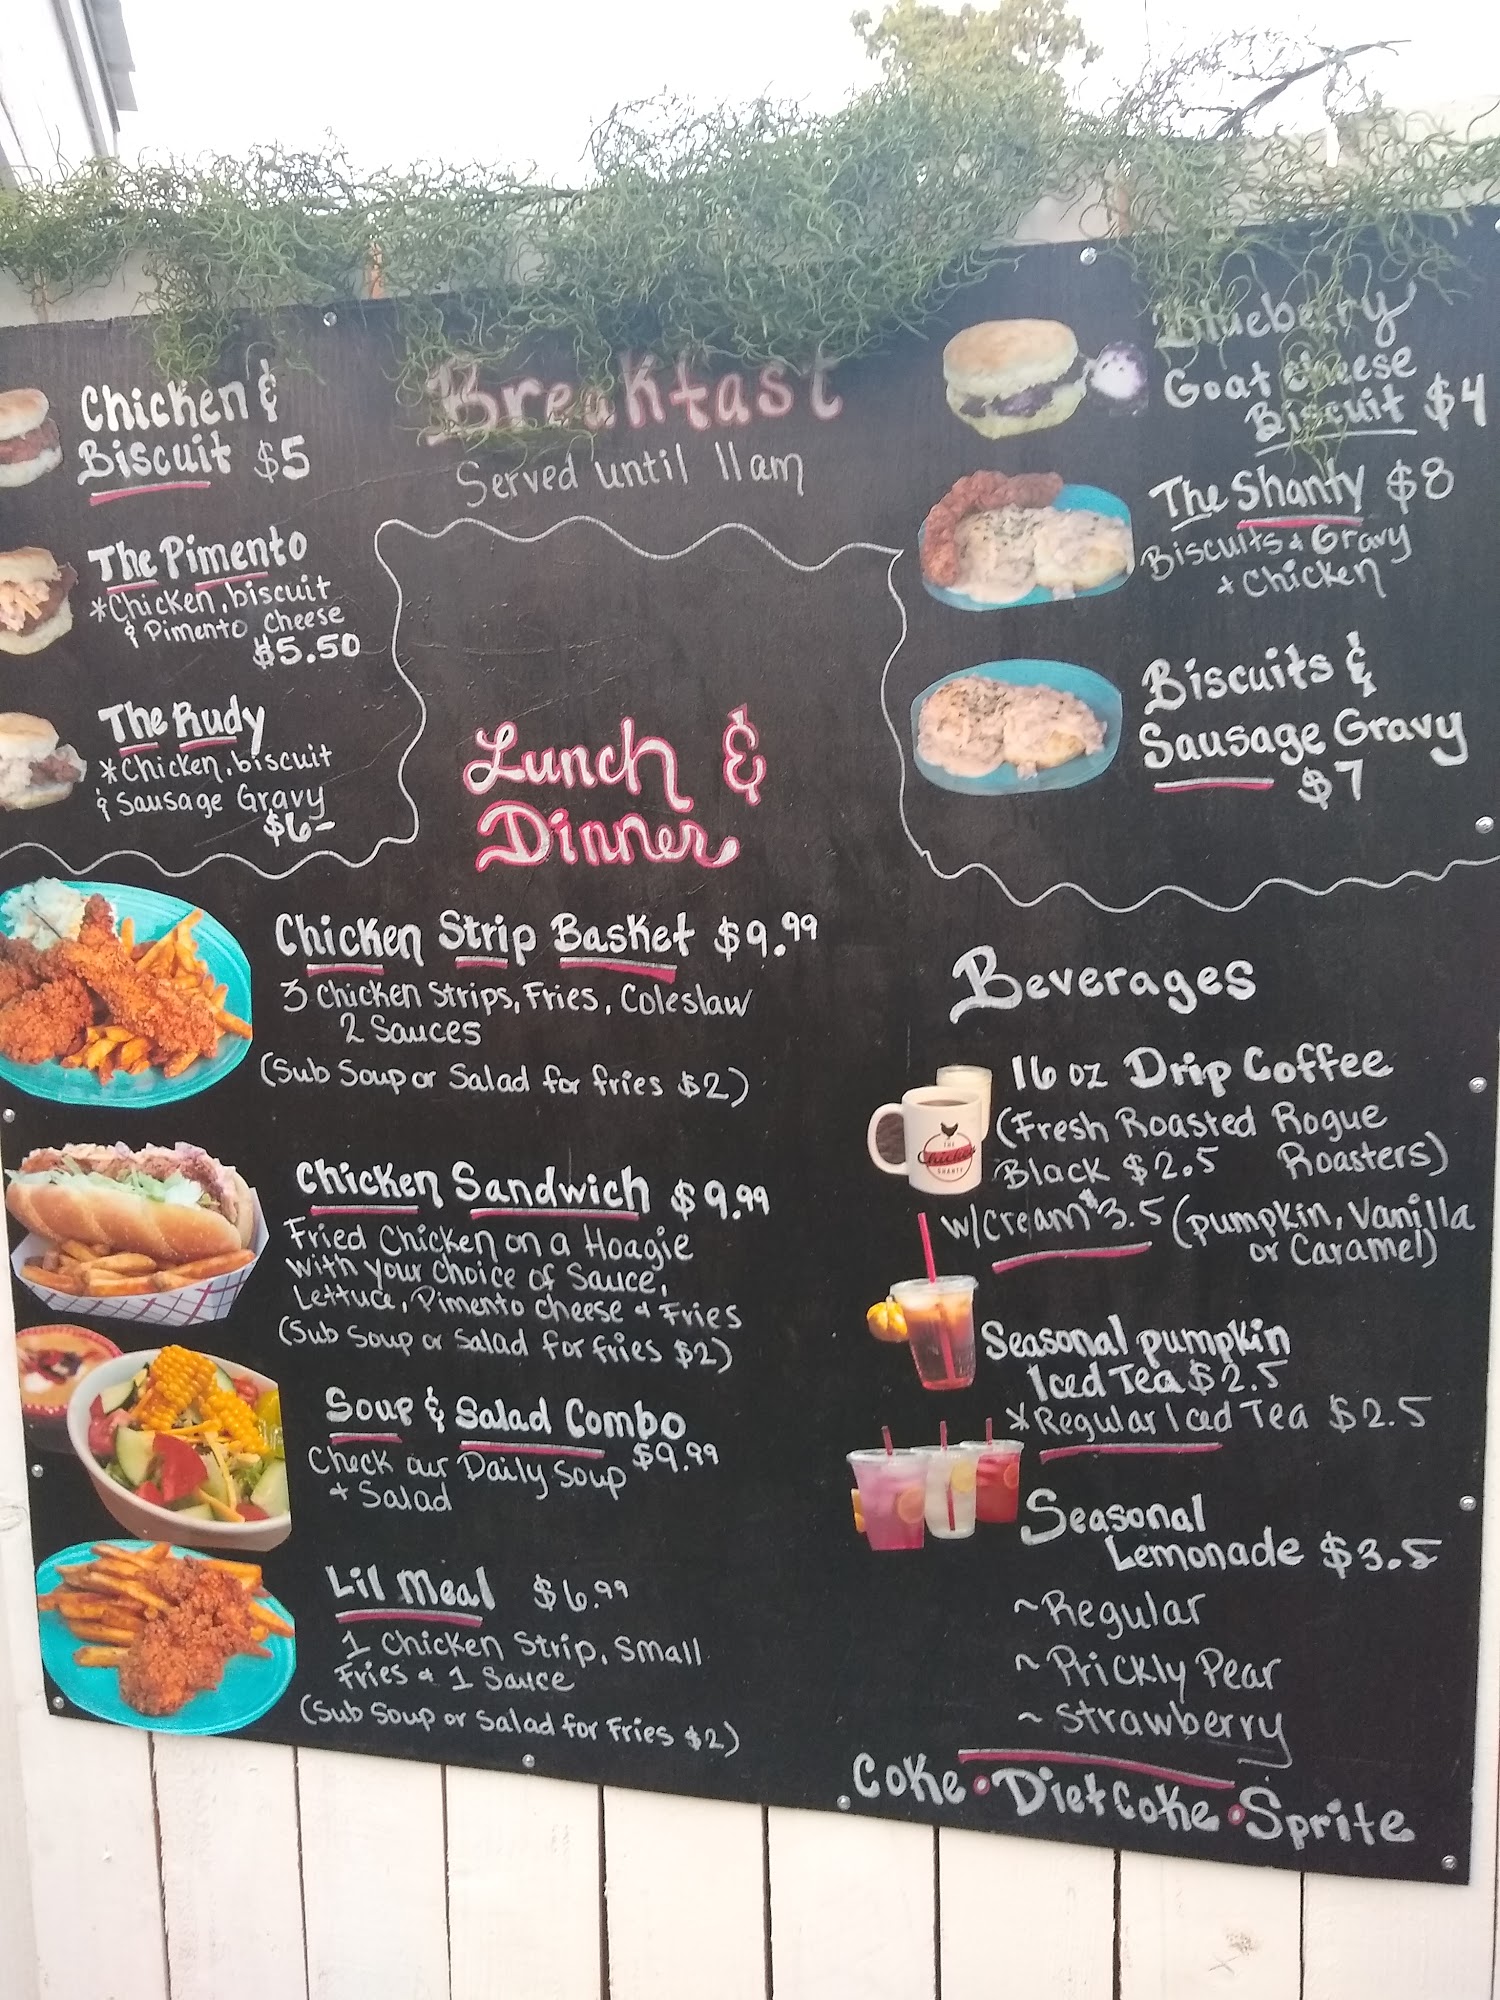 Breakfast
Served until 11am
Chicken &
Biscuit $5
The Pimento
*Chicken, biscuit
& Pimento cheese
$5.50
The Rudy
*Chicken, biscuit
& Sausage Gravy
$6-
Blueberry
Goat cheese
Biscuit $4
The Shanty $8
Biscuits & Gravy
+ Chicken
Biscuits &
Sausage Gravy
$7
Lunch &
Dinner
Chicken Strip Basket $9.99
3 Chicken Strips, Fries, Coleslaw
2 Sauces
(Sub Soup or Salad for fries $2)
Chicken Sandwich $9.99
Fried Chicken on a Hoagie
with your choice of Sauce,
Lettuce, Pimento cheese & Fries
(Sub Soup or Salad for fries $2)
Soup & Salad Combo
$9.99
Check our Daily Soup
+ Salad
Lil Meal $6.99
1 Chicken Strip, Small
Fries & 1 Sauce
(Sub Soup or Salad for Fries $2)
Beverages
16 oz Drip Coffee
(Fresh Roasted Rogue
Black $2.5 Roasters)
w/Cream $3.5 (pumpkin, Vanilla
or Caramel)
THE
Chicken
SHANTY
Seasonal pumpkin
Iced Tea $2.5
*Regular Iced Tea $2.5
Seasonal
Lemonade $3.5
~Regular
~Prickly Pear
~Strawberry
Coke • Diet Coke • Sprite